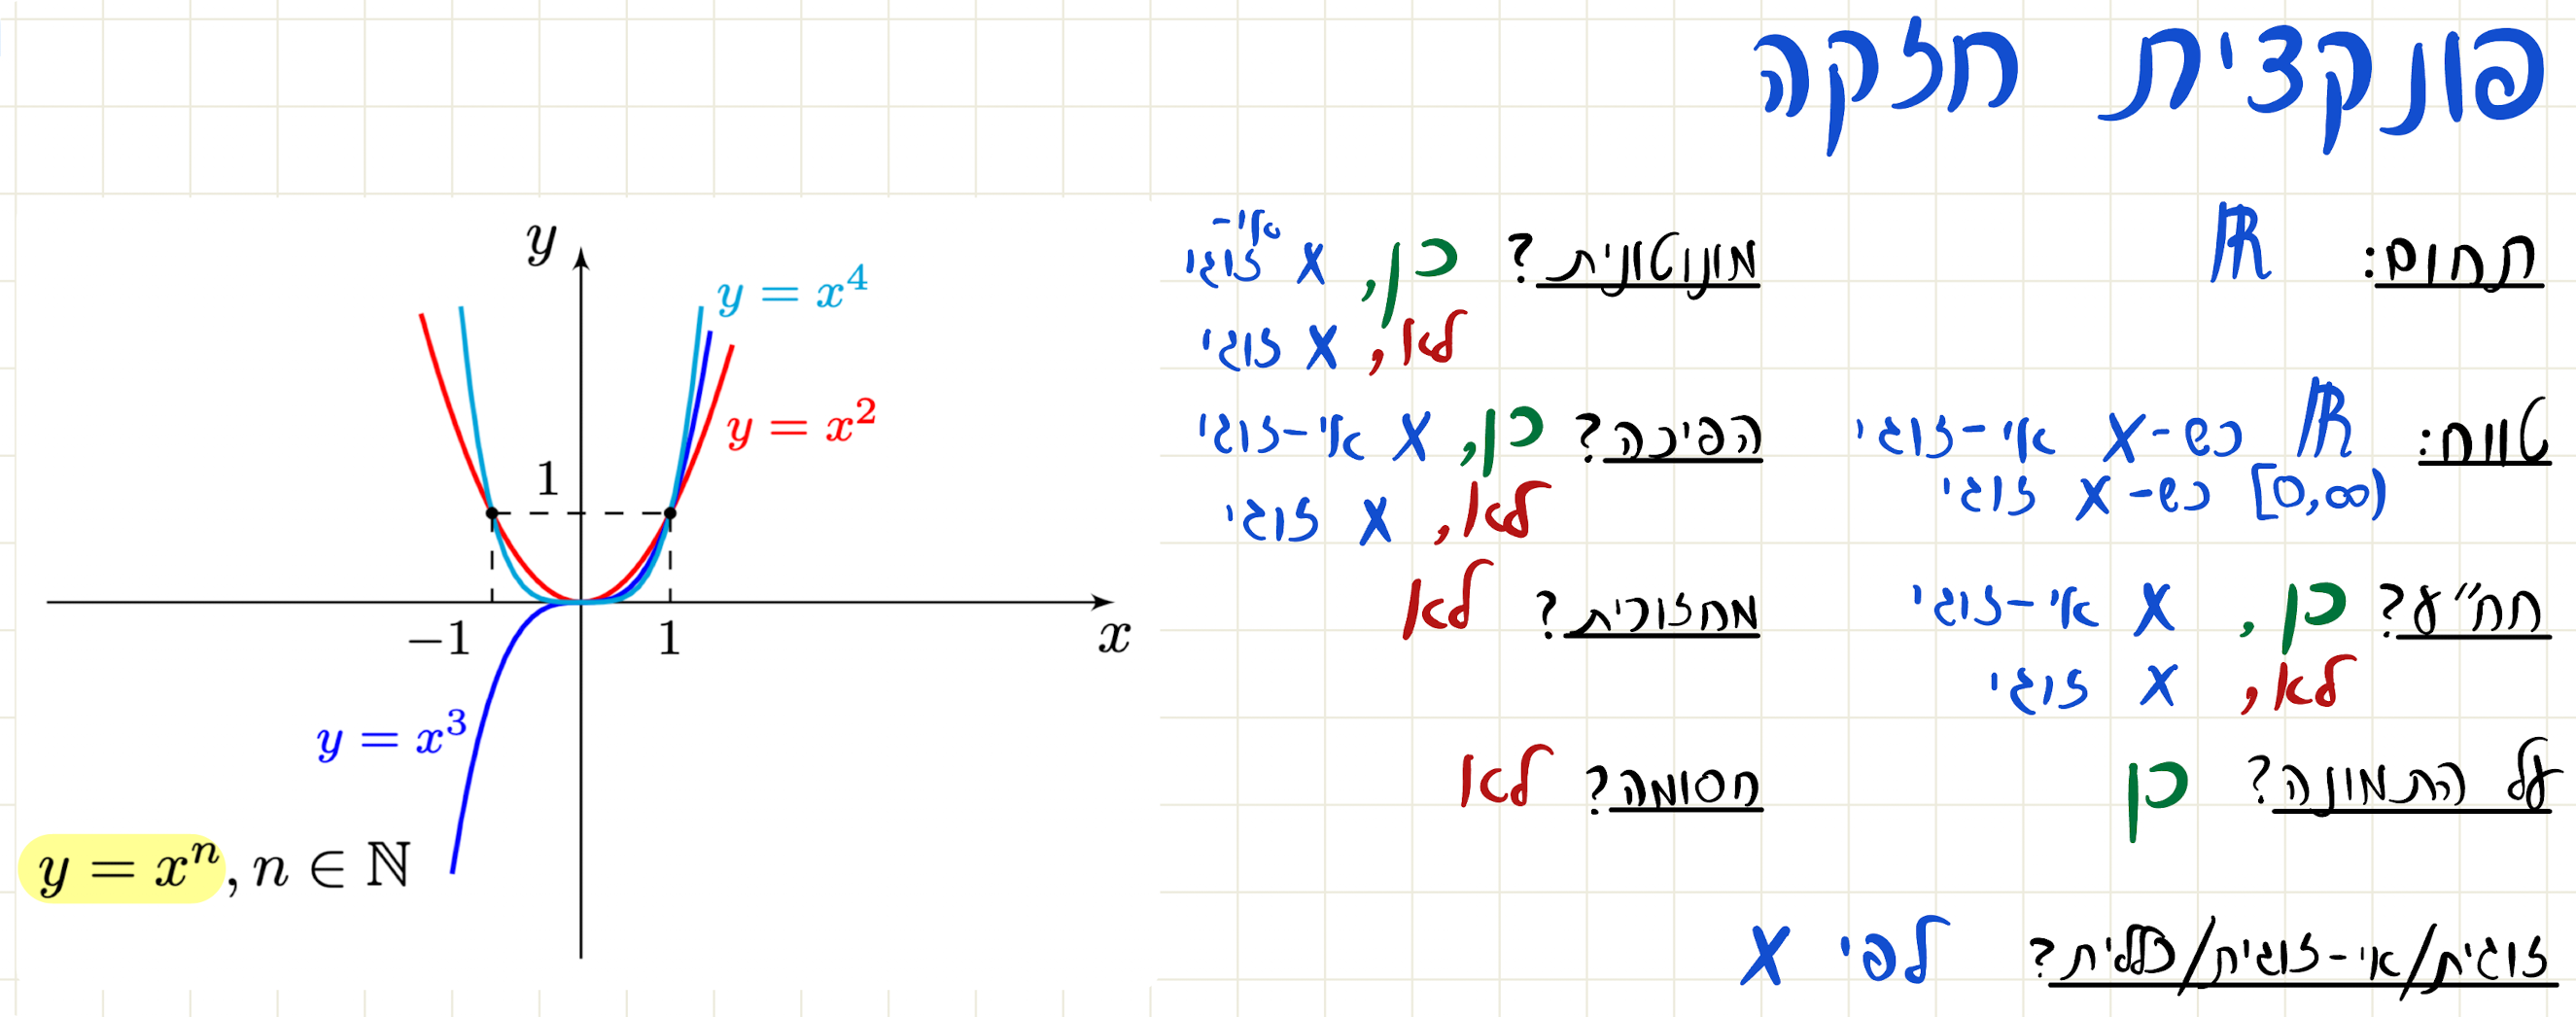 פונקצית חזקה
תחום: ℝ
טווח: ℝ כש-x אי-זוגי
[0,∞) כש-x זוגי
חח"ע? כן, x אי-זוגי
לא, x זוגי
על התמונה? כן
זוגית/אי-זוגית/כללית? לפי x
מונוטונית? כן, x אי-זוגי
לא, x זוגי
הפיכה? כן, x אי-זוגי
לא, x זוגי
מחזורית? לא
חסומה? לא
y
y = x⁴
y = x²
1
−1
1
x
y = x³
y = xⁿ, n ∈ ℕ